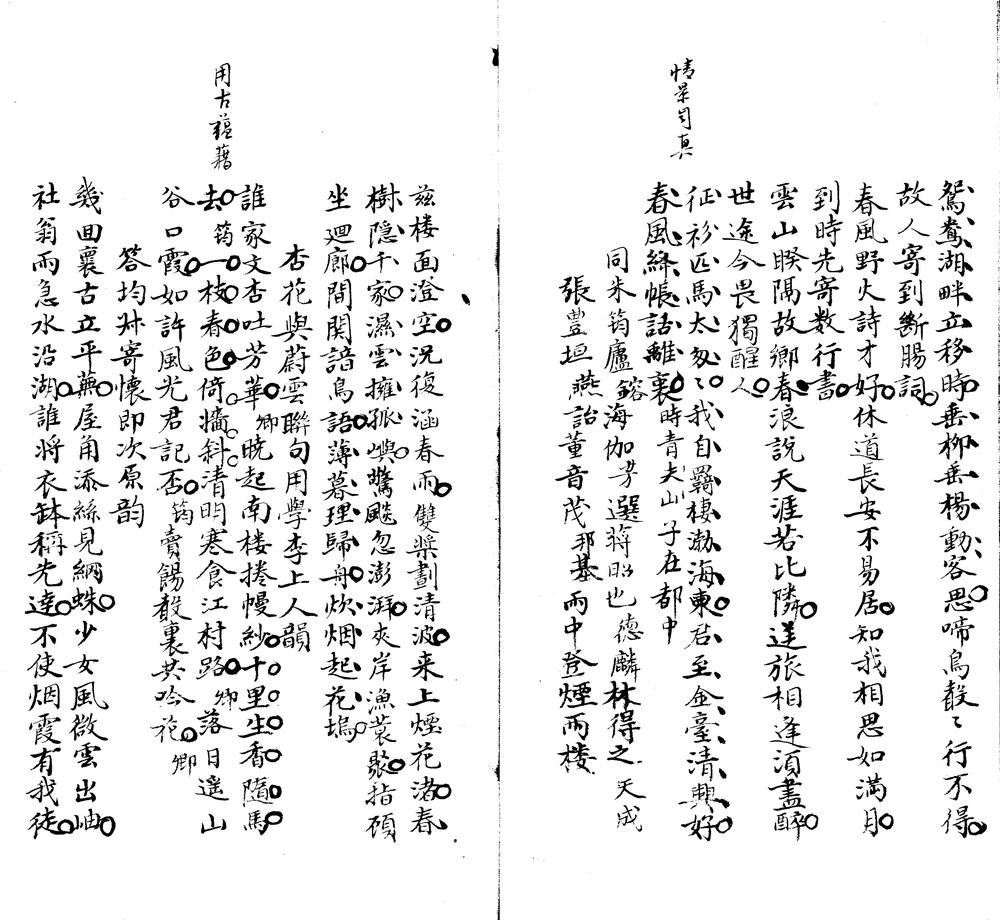 鴛鴦湖畔立移時垂柳垂楊動客思啼鳥聲〻行不得
故人寄到斷腸詞
春風野火詩才好休道長安不易居知我相思如滿月
到時先寄数行書
雲山暌隔故鄉春浪說天涯若比隣逆旅相逢須盡醉
世途今畏獨醒人
征衫匹馬太匆〻我自羈棲渤海東君至金臺清興好
情景自真
春風絳帳話離裏時青夫山子在都中
同朱筠廬鎔海伽芳選蔣昭也德麟林得之天成
張豊垣燕詒董音茂邦基雨中登煙雨楼
兹楼面澄空況復涵春雨雙槳劃清波来上煙花渚春
樹隐千家濕雲擁孤嶼驚飈忽澎湃夾岸漁蓑聚指顧
坐迴廊間関諳鳥語薄暮理歸舟炊烟起花塢
杏花與蔚雲聯句用學李上人韻
誰家文杏吐芳華卿曉起南楼捲幔紗十里生香隨馬
用古蘊藉
去筠一枝春色倚牆斜清明寒食江村路卿落日遥山
谷口霞如許風光君記否筠賣餳聲裏共吟花卿
答均叔寄懷即次原韵
幾回襄古立平蕪屋角添絲見網蛛少女風微雲出岫
社翁雨急水沿湖誰将衣鉢稱先達不使烟霞有我徒